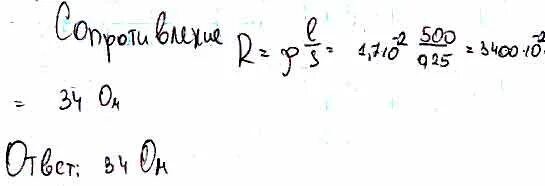 Сопротивление R = ρ l/s = 1,7·10⁻² 500/0,25 = 3400·10⁻²
= 34 Ом
Ответ: 34 Ом